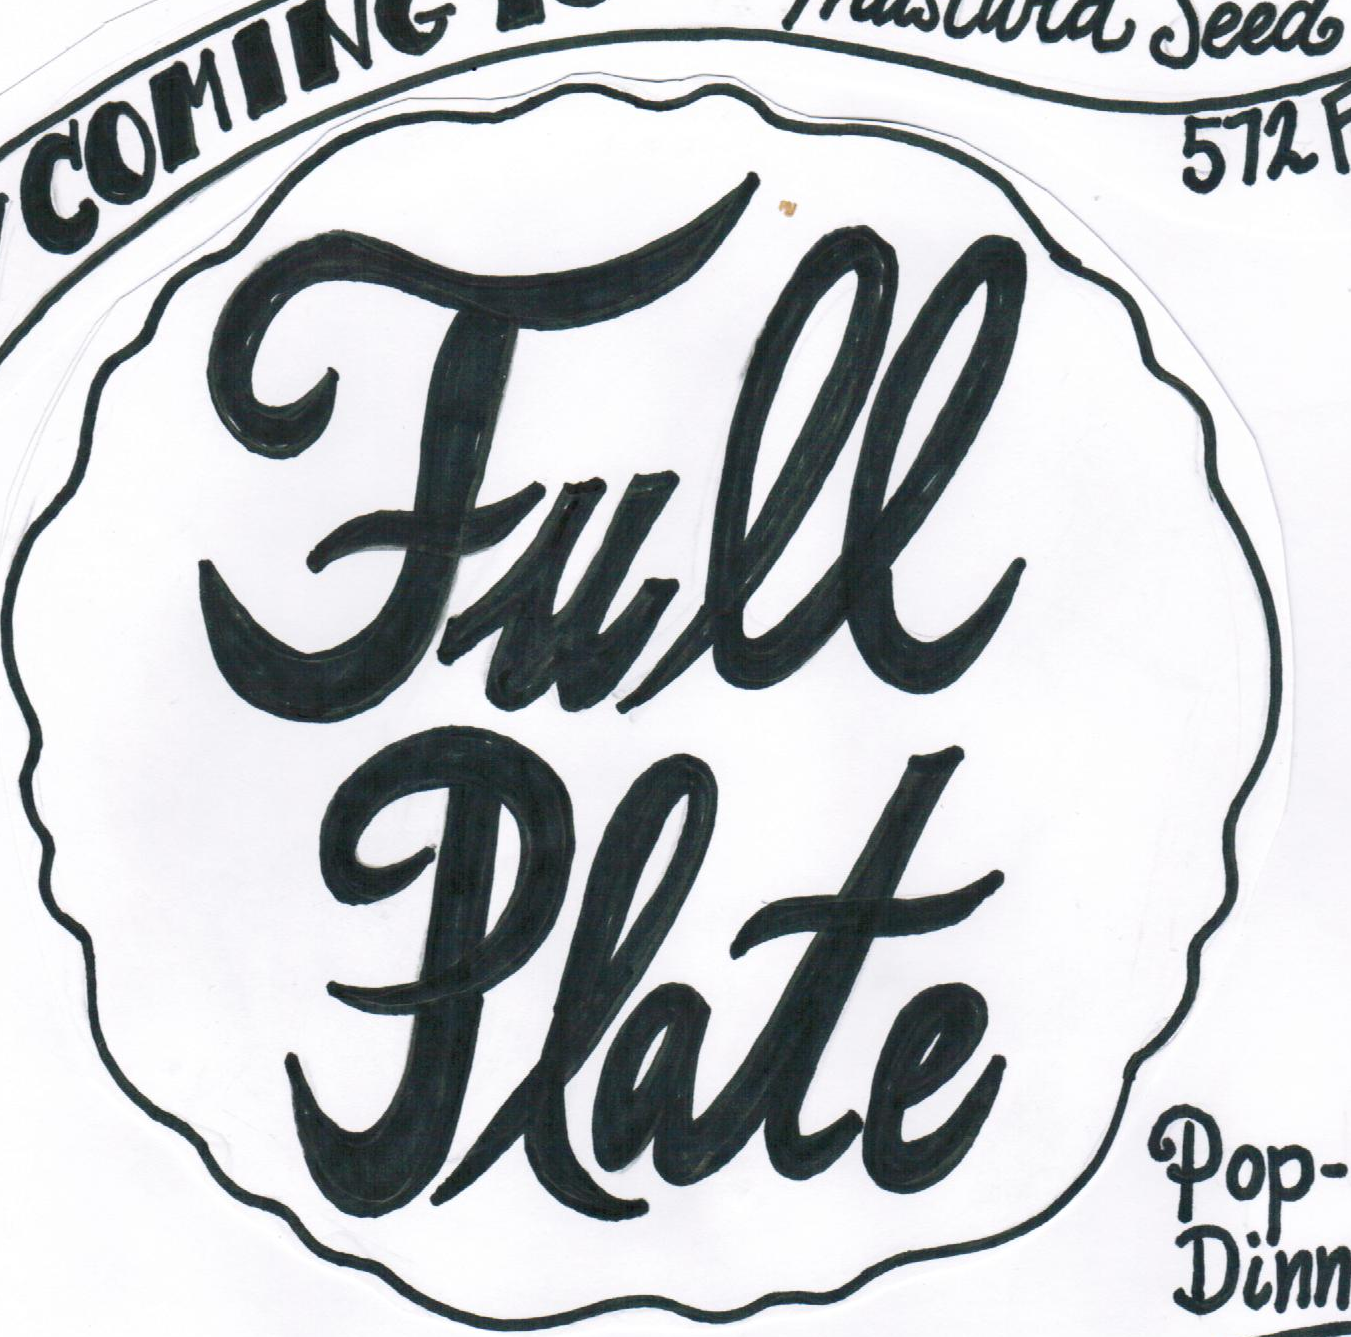 COMING TO
Mustard Seed
572 F
Full
Plate
Pop-
Dinn